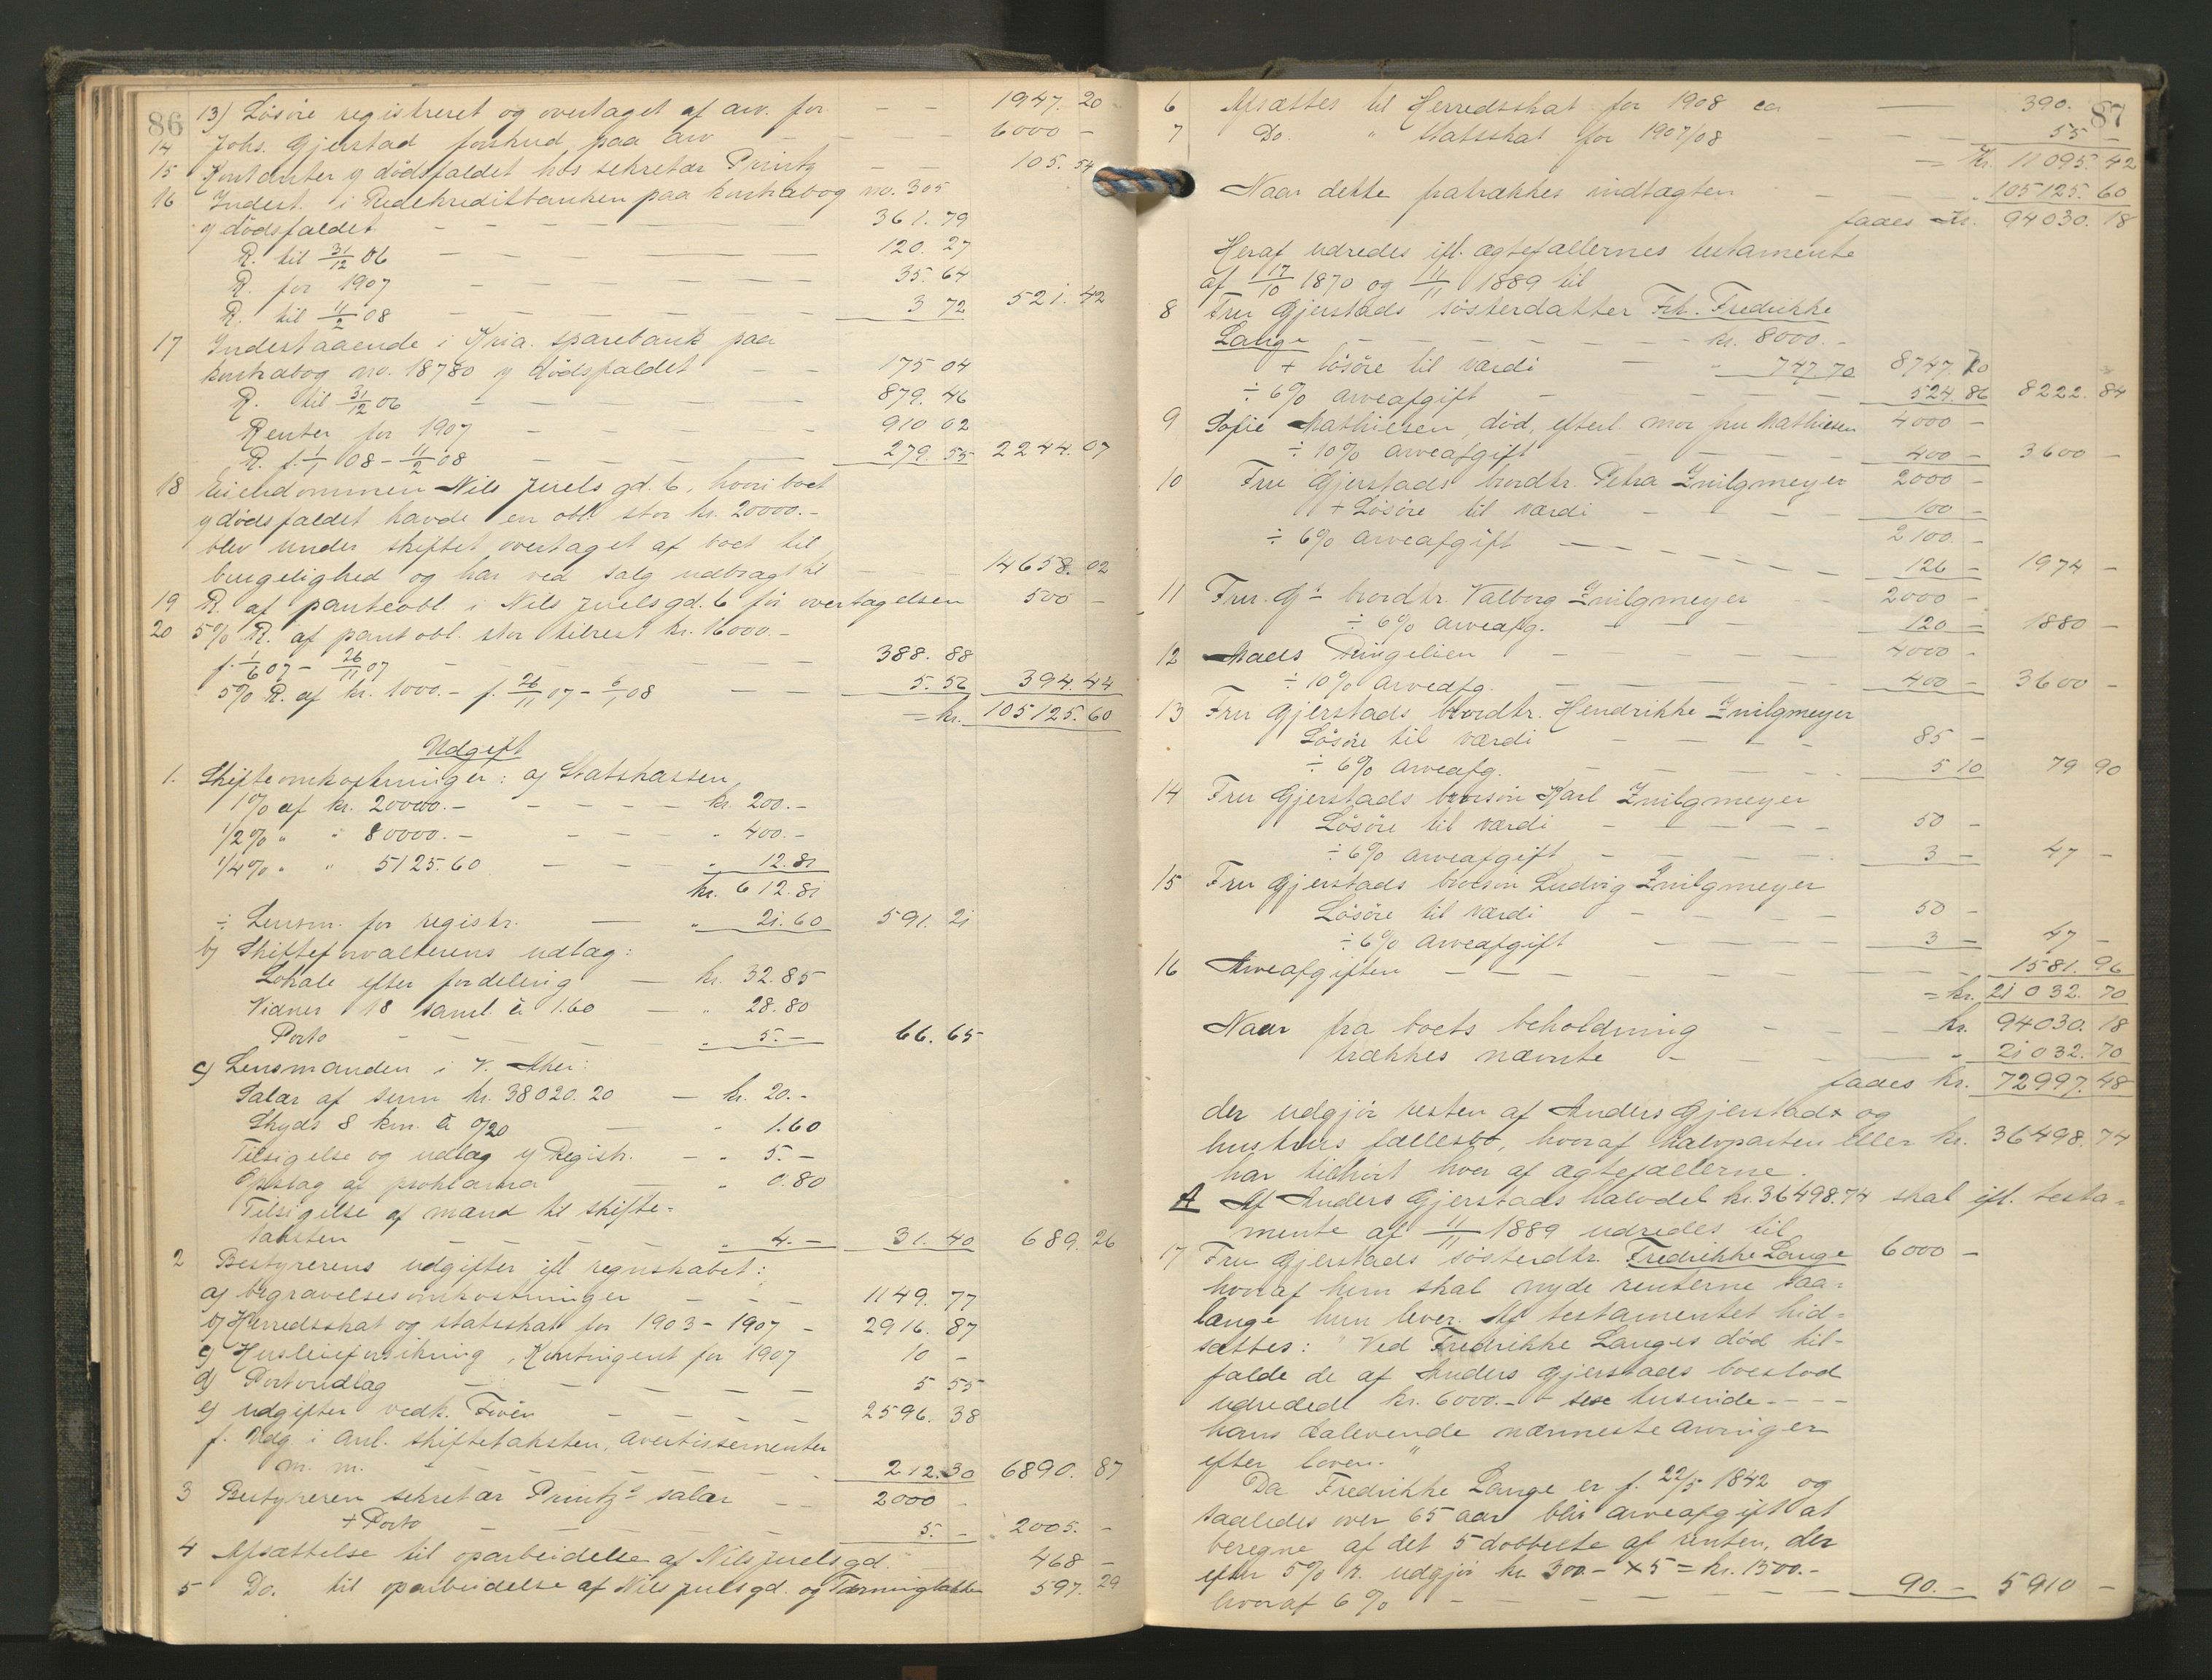 86
13) Løsøre registreret og overtaget af arv. for – – 1947. 20
14 Johs. Gjerstad forskud paa arv – – 6000 –
15 Kontanter y dødsfaldet hos sekretær Printz – – 105. 54
16 Indest. i Redekreditbanken paa kontrabog no. 305
y dødsfaldet – – – 361. 79
R. til 31/12 06 – – – 120. 27
R. for 1907 – – – 35. 64
R. til 11/2 08 – – – 3 72 521. 42
17 Indestaaende i Kria. sparebank paa
kontrabog no. 18780 y dødsfaldet – – 175 04
R. til 31/12 06 – – – 879. 46
Renter for 1907 – – – 910 02
R. f. 1/1 08 – 11/2 08 – – – 279. 55 2244. 07
18 Eiendommen Nils Juels gd. 6, hvori boet
y dødsfaldet havde en obl. stor kr. 20000.–
blev under skiftet overtaget af boet til
brugelighed og har ved salg udbragt til – 14658. 02
19 R. af panteobl. i Nils Juelsgd. 6 før overtagelsen 500 –
20 5% R. af pantobl. stor tilrest kr. 16000.–
f. 1/6 07 – 26/11 07 – – – 388. 88
5% R. af kr. 1000.– f. 26/11 07 – 6/1 08 – 5. 56 394. 44
= kr. 105125. 60
Udgift
1. Skifteomkostninger: a) Statskassen
1% af kr. 20000.– – – – kr. 200.–
1/2% " " 80000.– – – – " 400.–
1/4% " " 5125.60 – – " 12.81
kr. 612.81
÷ Lensm. for registr. – " 21.60 591. 21
b) Skifteforvalterens udlæg:
Lokale efter fordeling – kr. 32.85
Vidner 18 saml. à 1.60 – " 28.80
Porto – – – " 5.– 66. 65
c) Lensmanden i V. Aker:
Salær af sum kr. 38020.20 – kr. 20.–
Skyds 8 km. à 0/20 – " 1.60
Tilsigelse og udlæg y Registr. – " 5.–
Opslag af proklama – " 0.80
Tilsigelse af mænd til skifte=
taksten – – – " 4.– 31. 40 689. 26
2 Bestyrerens udgifter ifl. regnskabet:
a) begravelsesomkostninger – – – 1149. 77
b) Herredsskat og statsskat for 1903–1907 – 2916. 87
c) Husleieforsikring, Kontingent for 1907 10 –
d) Portoudlæg – – – 5 55
e) udgifter vedk. – – – 2596. 38
f. Udg. i anl. skiftetaksten, avertissementer
m. m. – – – 212.30 6890. 87
3 Bestyreren sekretær Printz's salær – – 2000 –
+ Porto – – – 5. – 2005. –
4 Afsættelse til oparbeidelse af Nils Juelsgd. 468 –
5 Do. til oparbeidelse af Nils Juelsgd. og 597. 29
87
6 Afsættes til Herredsskat for 1908 ca – 390. –
7 Do. " Statsskat for 1907/08 – – 55 –
= Kr. 11095. 42
Naar dette fratrækkes indtægten – – " 105125. 60
faaes Kr. 94030. 18
Heraf udredes ifl. ægtefællernes testamente
af 17/10 1870 og 11/11 1889 til
8 Fru Gjerstads søsterdatter Frk. Fredrikke
Lange – – – kr. 8000.–
+ løsøre til værdi – " 747.70 8747. 70
÷ 6% arveafgift – – – 524. 86 8222. 84
9 Sofie Mathiesen, død, efterl. mor fru Mathiesen 4000 –
÷ 10% arveafgift – – 400 – 3600 –
10 Fru Gjerstads brordtr. Petra Zwilgmeyer 2000 –
+ Løsøre til værdi – – – 100 –
2100. –
÷ 6% arveafgift – – – 126 – 1974 –
11 Fru Gs brordtr. Valborg Zwilgmeyer – 2000 –
÷ 6% arveafg. – – – 120 – 1880 –
12 Mads – – – 4000 –
÷ 10% arveafg. – – – 400 – 3600 –
13 Fru Gjerstads brordtr. Hendrikke Zwilgmeyer
Løsøre til værdi – – – 85 –
÷ 6% arveafg. – – – 5 10 79 90
14 Fru Gjerstads brorsøn Karl Zwilgmeyer
Løsøre til værdi – – – 50 –
÷ 6% arveafgift – – – 3 – 47 –
15 Fru Gjerstads brorsøn Ludvig Zwilgmeyer
Løsøre til værdi – – – 50 –
÷ 6% arveafgift – – – 3 – 47 –
16 Arveafgiften – – – 1581. 96
= kr. 21032. 70
Naar fra boets beholdning – – – kr. 94030. 18
trækkes nævnte – – – " 21032. 70
faaes kr. 72997. 48
der udgjør resten af Anders Gjerstads og
hustrus fællesbo, hvoraf halvparten eller kr. 36498. 74
har tilhørt hver af ægtefællerne.
A Af Anders Gjerstads halvdel kr. 36498.74 skal ifl. testa=
mente af 11/11 1889 udredes til
17 Fru Gjerstads søsterdtr. Fredrikke Lange 6000 –
hvoraf hun skal nyde renterne saa=
længe hun lever. Af testamentet hid=
sættes: "Ved Fredrikke Langes død til=
falde de af Anders Gjerstads boeslod
udredede kr. 6000.– – sex tusinde – – –
hans dalevende nærmeste arvinger
efter loven."
Da Fredrikke Lange er f. 22/5 1842 og
saaledes over 65 aar blir arveafgift at
beregne af det 5 dobbelte af renten, der
efter 5% r. udgjør kr. 300.– × 5 = kr. 1500.–
hvoraf 6% – – – 90. – 5910 –